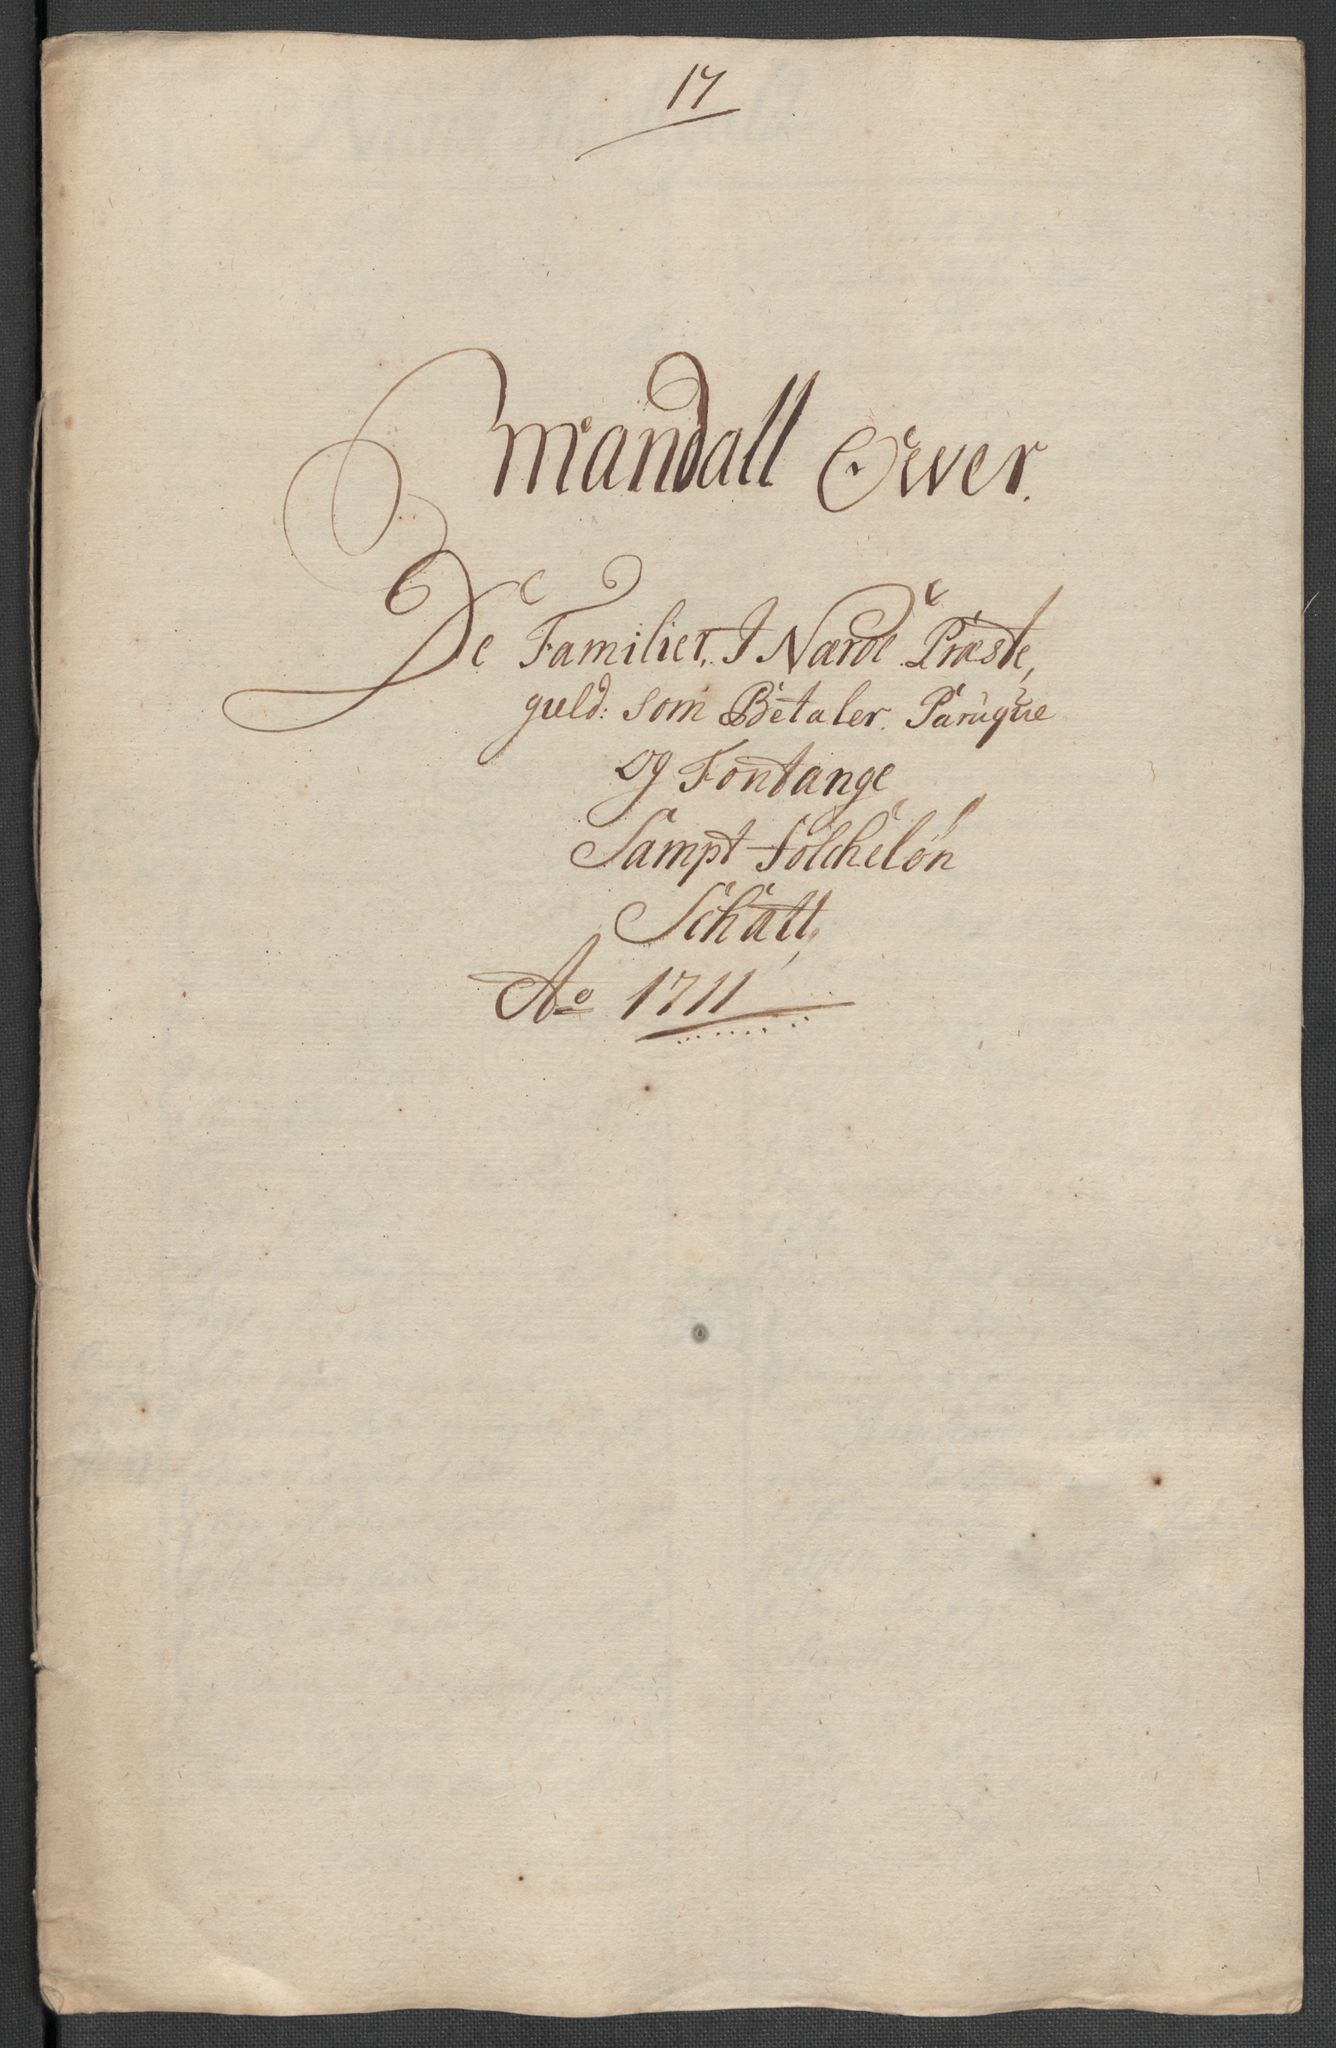 17
Mandall Over.
De Familier, I Nærøe Præste,
guld: som Betaler. Paruque
og Fontange
Sampt Folcheløn
Schatt,
Ao 1711